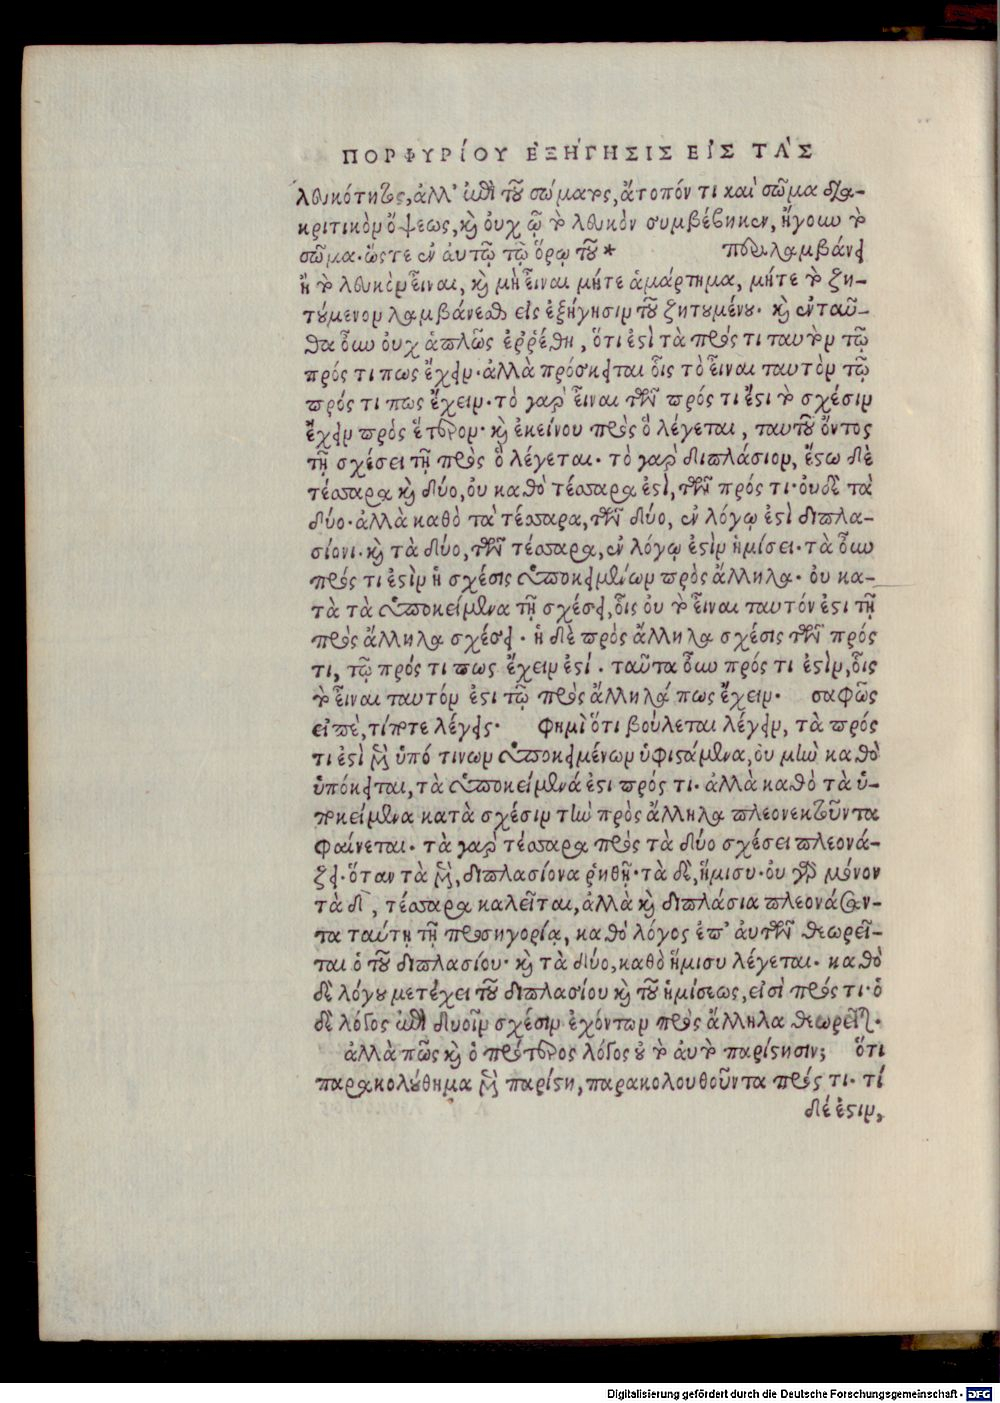 ΠΟΡΦΥΡΊΟΥ ἘΞΉΓΗΣΙΣ ΕἸΣ ΤᾺΣ
λευκότητος, ἀλλ' ἐπὶ τοῦ σώματος, ἄτοπόν τι καὶ σῶμα δια-
κριτικὸν ὄψεως, καὶ οὐχ ᾧ τὸ λευκὸν συμβέβηκεν, ἤγουν τὸ
σῶμα· ὥστε ἐν αὐτῷ τῷ ὅρῳ τοῦ * προσλαμβάνει
ἢ τὸ λευκὸν εἶναι, καὶ μὴ εἶναι μήτε ἁμάρτημα, μήτε τὸ ζη-
τούμενον λαμβάνεσθαι εἰς ἐξήγησιν τοῦ ζητουμένου. καὶ ἐνταῦ-
θα οὖν οὐχ ἁπλῶς ἐῤῥέθη, ὅτι ἐστὶ τὰ πρός τι ταυτὸν τῷ
πρός τι πως ἔχειν· ἀλλὰ πρόσκειται οἷς τὸ εἶναι ταυτὸν τῷ
πρός τι πως ἔχειν· τὸ γὰρ εἶναι τῶν πρός τι ἔστι τὸ σχέσιν
ἔχειν πρὸς ἕτερον· καὶ ἐκείνου πρὸς ὃ λέγεται, ταυτοῦ ὄντος
τῇ σχέσει τῇ πρὸς ὃ λέγεται. τὸ γὰρ διπλάσιον, ἔστω δὲ
τέσσαρα καὶ δύο, οὐ καθὸ τέσσαρα ἐστὶ, τῶν πρός τι· οὐδὲ τὰ
δύο· ἀλλὰ καθὸ τὰ τέσσαρα, τῶν δύο, ἐν λόγῳ ἐστὶ διπλα-
σίονι. καὶ τὰ δύο, τῶν τέσσαρα, ἐν λόγῳ ἐστὶν ἡμίσει. τὰ οὖν
πρός τι ἐστὶν ἡ σχέσις ὑποκειμένων πρὸς ἄλληλα. οὐ κα-
τὰ τὰ ὑποκείμενα τῇ σχέσει, οἷς οὐ τὸ εἶναι ταυτόν ἐστι τῇ
πρὸς ἄλληλα σχέσει. ἡ δὲ πρὸς ἄλληλα σχέσις τῶν πρός
τι, τῷ πρός τι πως ἔχειν ἐστί. ταῦτα οὖν πρός τι ἐστὶν, οἷς
τὸ εἶναι ταυτόν ἐστι τῷ πρὸς ἄλληλά πως ἔχειν. σαφῶς
εἰπὲ, τί ποτε λέγεις. φημὶ ὅτι βούλεται λέγειν, τὰ πρός
τι ἐστὶ μὲν ὑπό τινων ὑποκειμένων ὑφιστάμενα, οὐ μὴν καθὸ
ὑπόκειται, τὰ ὑποκείμενά ἐστι πρός τι. ἀλλὰ καθὸ τὰ ὑ-
ποκείμενα κατὰ σχέσιν τὴν πρὸς ἄλληλα πλεονεκτοῦντα
φαίνεται. τὰ γὰρ τέσσαρα πρὸς τὰ δύο σχέσει πλεονά-
ζει. ὅταν τὰ μὲν, διπλασίονα ῥηθῇ· τὰ δὲ, ἥμισυ. οὐ γὰρ μόνον
τὰ δ̄, τέσσαρα καλεῖται, ἀλλὰ καὶ διπλάσια πλεονάσαν-
τα ταύτῃ τῇ προσηγορίᾳ, καθὸ λόγος ἐπ' αὐτῶν θεωρεῖ-
ται ὁ τοῦ διπλασίου· καὶ τὰ δύο, καθὸ ἥμισυ λέγεται. καθὸ
δὲ λόγου μετέχει τοῦ διπλασίου καὶ τοῦ ἡμίσεως, εἰσὶ πρός τι· ὁ
δὲ λόγος ἐπὶ δυοῖν σχέσιν ἐχόντων πρὸς ἄλληλα θεωρεῖται.
ἀλλὰ πῶς καὶ ὁ πρότερος λόγος οὐ τὸ αὐτὸ παρίστησιν; ὅτι
παρακολούθημα μὲν παρίστη, παρακολουθοῦντα πρός τι. τί
δέ ἐστιν,
Digitalisierung gefördert durch die Deutsche Forschungsgemeinschaft - DFG